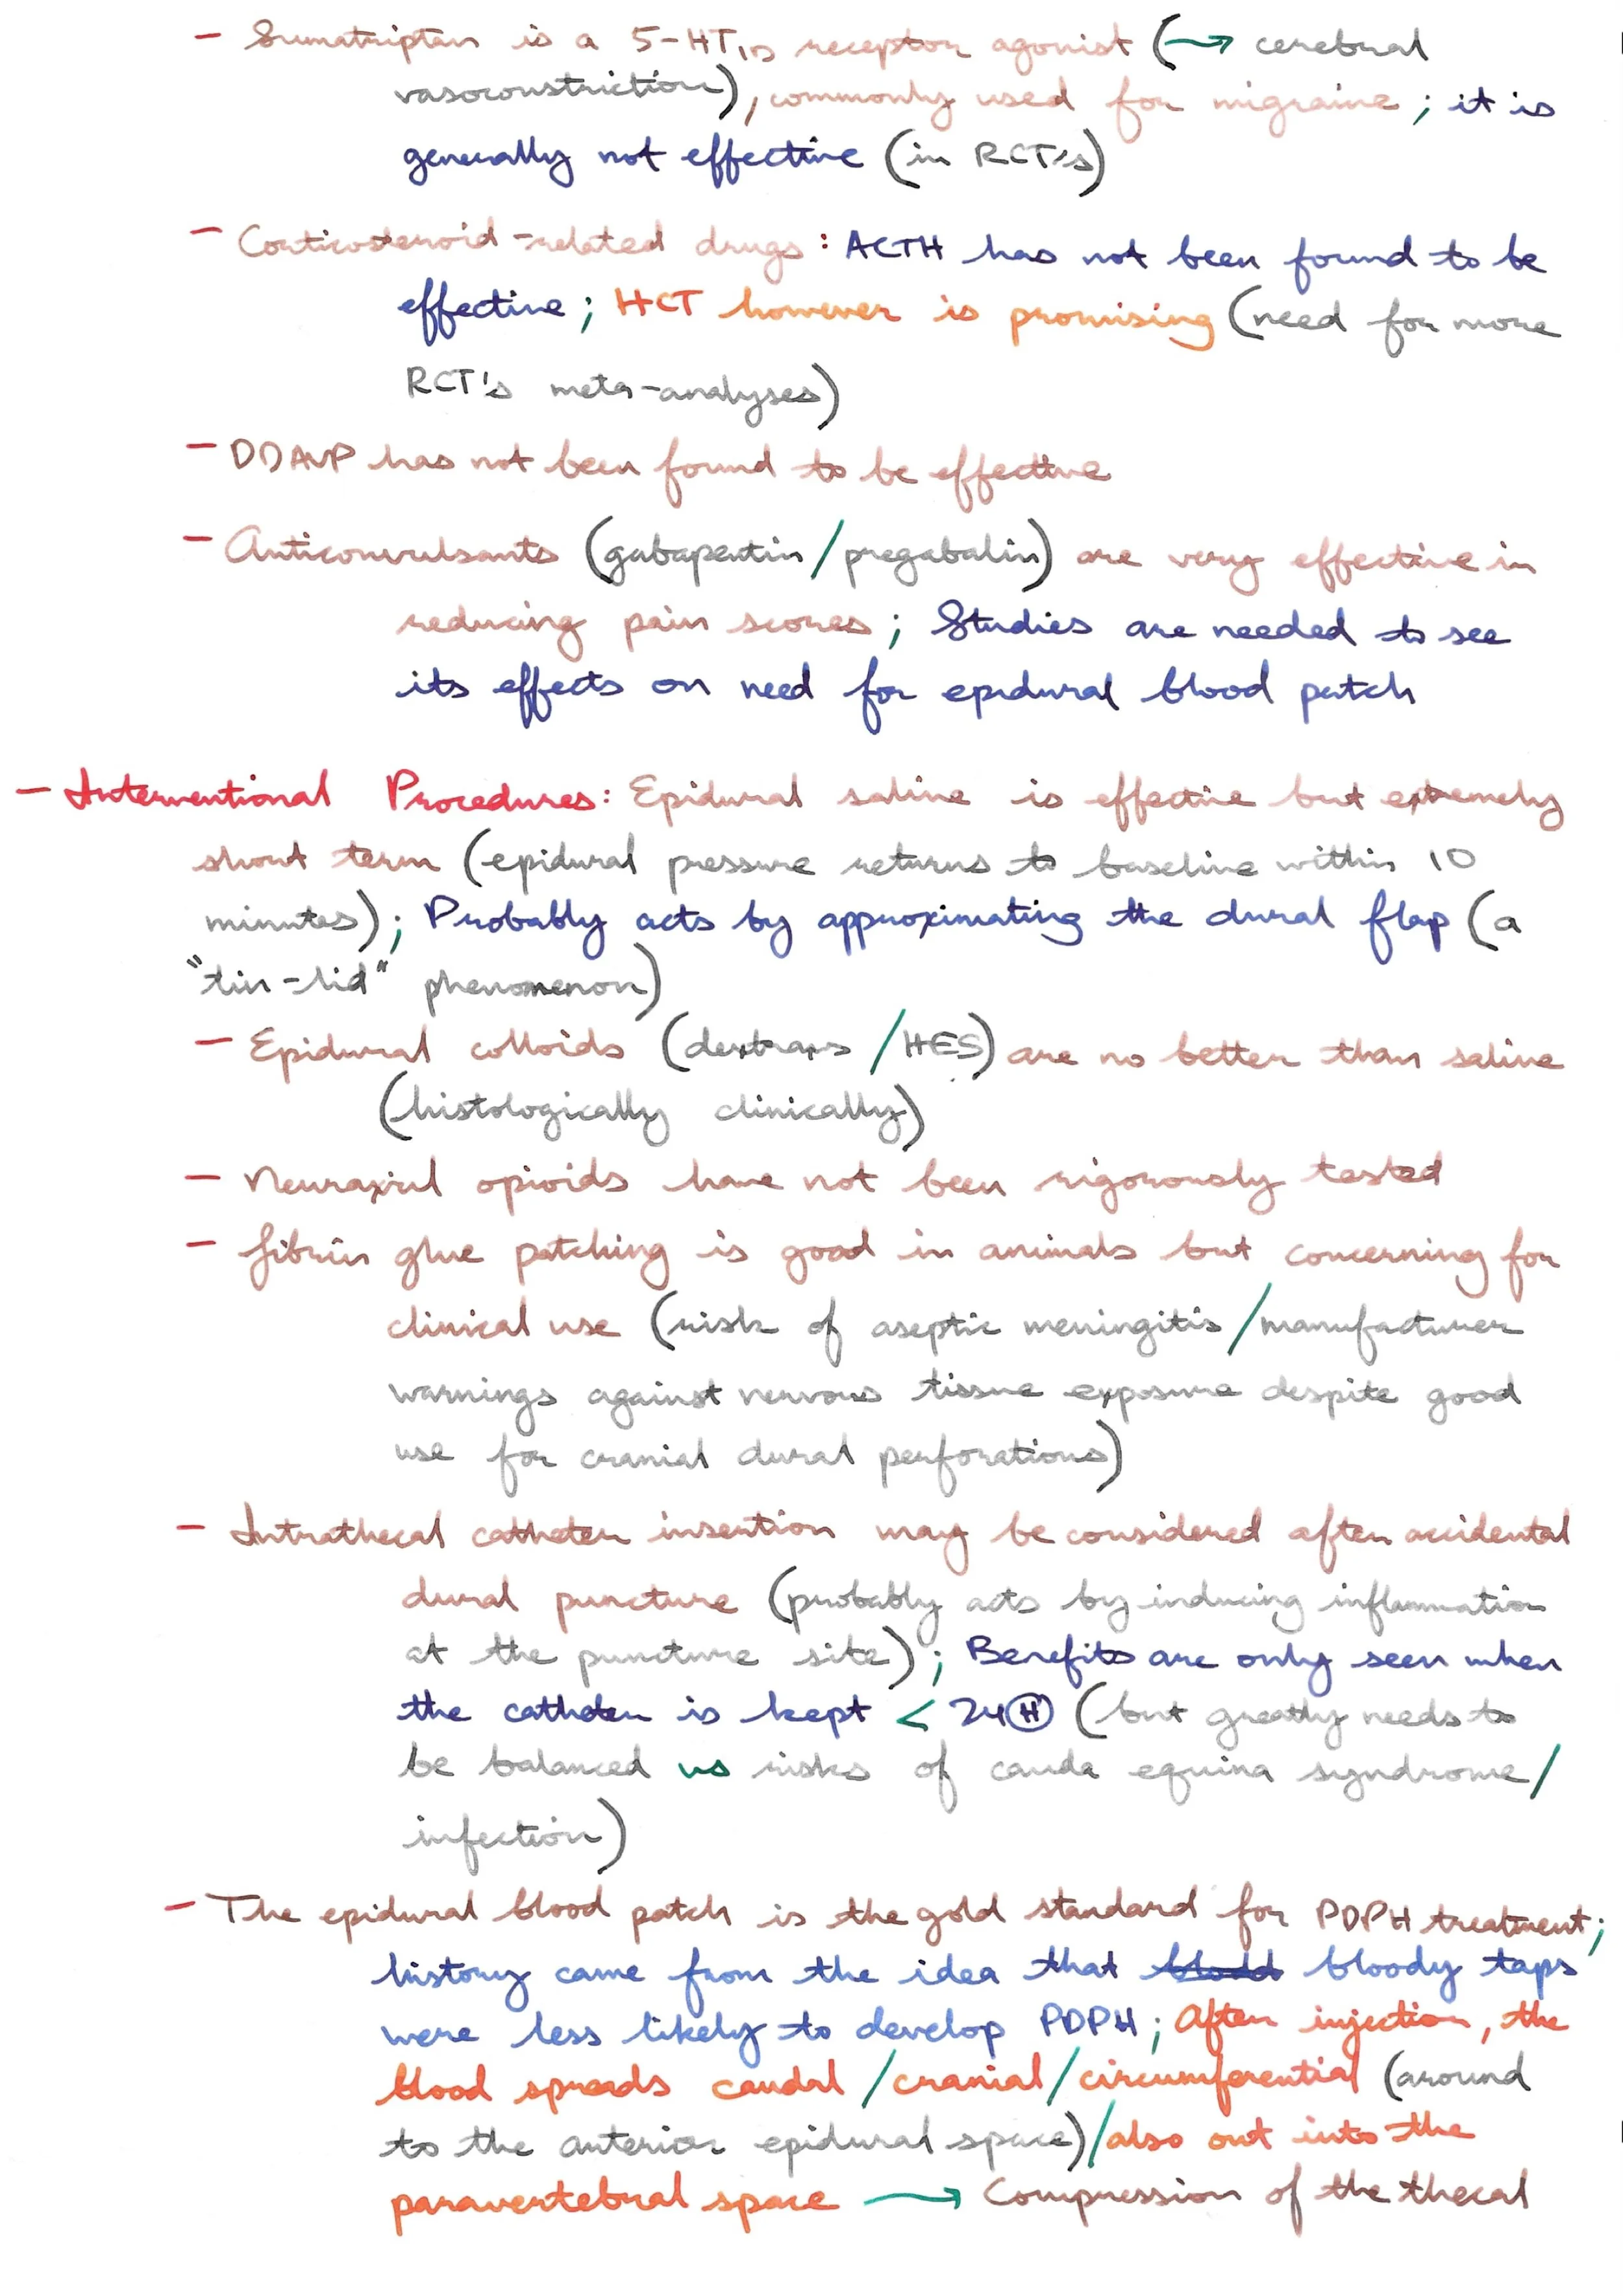 - Sumatriptan is a 5-HT1D receptor agonist (→ cerebral
vasoconstriction), commonly used for migraine; it is
generally not effective (in RCT's)
- Corticosteroid-related drugs: ACTH has not been found to be
effective; HCT however is promising (need for more
RCT's meta-analyses)
- DDAVP has not been found to be effective
- Anticonvulsants (gabapentin/pregabalin) are very effective in
reducing pain scores; Studies are needed to see
its effects on need for epidural blood patch
- Interventional Procedures: Epidural saline is effective but extremely
short term (epidural pressure returns to baseline within 10
minutes); Probably acts by approximating the dural flap (a
"tin-lid" phenomenon)
- Epidural colloids (dextrans/HES) are no better than saline
(histologically clinically)
- Neuraxial opioids have not been rigorously tested
- Fibrin glue patching is good in animals but concerning for
clinical use (risk of aseptic meningitis/manufacturer
warnings against nervous tissue exposure despite good
use for cranial dural perforations)
- Intrathecal catheter insertion may be considered after accidental
dural puncture (probably acts by inducing inflammation
at the puncture site); Benefits are only seen when
the catheter is kept < 24Ⓗ (but greatly needs to
be balanced vs risks of cauda equina syndrome/
infection)
- The epidural blood patch is the gold standard for PDPH treatment;
history came from the idea that bloody taps
were less likely to develop PDPH; After injection, the
blood spreads caudal/cranial/circumferential (around
to the anterior epidural space)/also out into the
paravertebral space → Compression of the thecal